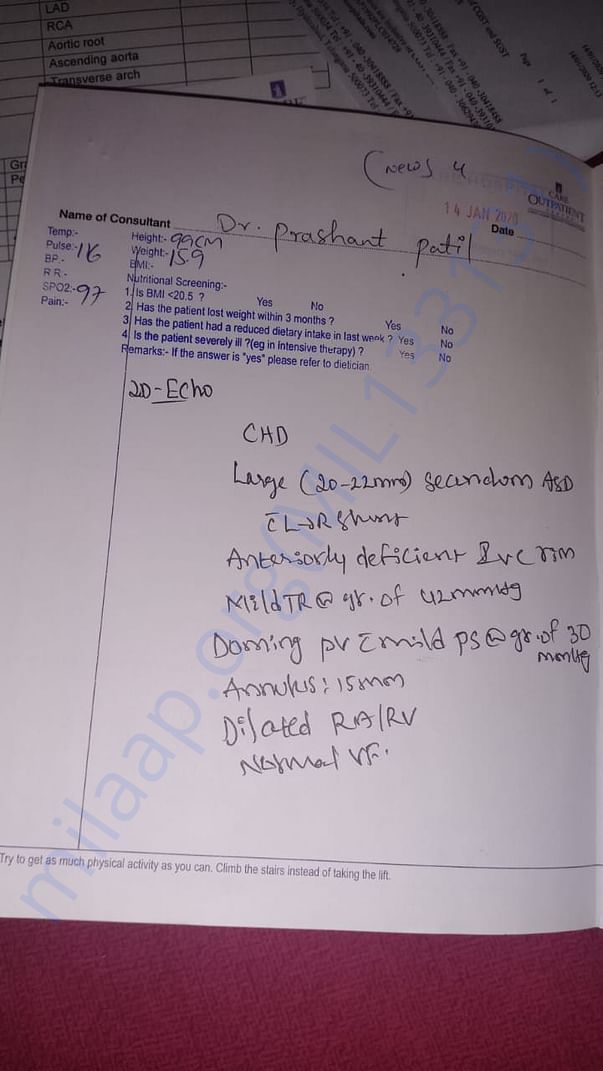 LAD
RCA
Aortic root
Ascending aorta
Transverse arch
CGST and SGST
Page 1 of 1
14/01/2020 12:13
Gr
Pe
(news 4
CARE
OUTPATIENT
14 JAN 2020
Date
Name of Consultant Dr. Prashant patil
Temp:- Height:- 99cm
Pulse:- 116 Weight:- 15.9
BP.- BMI:-
RR.- Nutritional Screening:-
SPO2:- 97 1. Is BMI <20.5 ? Yes No
Pain:- 2. Has the patient lost weight within 3 months ? Yes No
3. Has the patient had a reduced dietary intake in last week ? Yes No
4. Is the patient severily ill ?(eg in Intensive therapy) ? Yes No
Remarks:- If the answer is "yes" please refer to dietician
2D-Echo
CHD
Large (20-22mm) secundom ASD
L→R Shunt
Anteriorly deficient IVC rim
Mild TR @ gr. of 42mmHg
Doming PV mild PS @ gr. of 30
mmHg
Annulus: 15mm
Dilated RA/RV
Normal VF.
Try to get as much physical activity as you can. Climb the stairs instead of taking the lift.